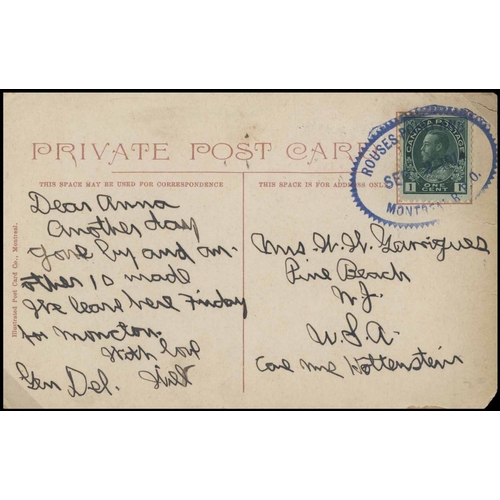 PRIVATE POST CARD
THIS SPACE MAY BE USED FOR CORRESPONDENCE
THIS SPACE IS FOR ADDRESS ONLY
Dear Anna
Another day
gone by and an-
other is made
We leave here Friday
for Moncton
With love
Gen Del. Will
Mrs W. H. Garrigues
Pine Beach
N.J.
U.S.A.
Care Mrs Hottenstein
Illustrated Post Card Co., Montreal.
ROUSES
SEP
MONTREAL R.P.O.
CANADA POSTAGE
1 ONE CENT 1